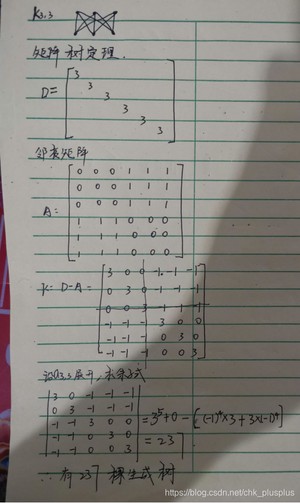 K3,3
矩阵树定理.
D= [3 3 3 3 3 3]
邻接矩阵
A=
0 0 0 1 1 1
0 0 0 1 1 1
0 0 0 1 1 1
1 1 1 0 0 0
1 1 1 0 0 0
1 1 1 0 0 0
K= D-A=
3 0 0 -1 -1 -1
0 3 0 -1 -1 -1
0 0 3 -1 -1 -1
-1 -1 -1 3 0 0
-1 -1 -1 0 3 0
-1 -1 -1 0 0 3
a3,3展开, 余子式
3 0 -1 -1 -1
0 3 -1 -1 -1
-1 -1 3 0 0
-1 -1 0 3 0
-1 -1 0 0 3
=3^5+0-[(-1)^4×3+3×(-1)^4]
=237
∴有237棵生成树
https://blog.csdn.net/chk_plusplus